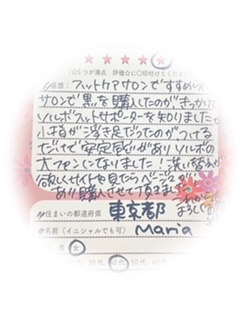 ※5つが満点 評価☆に○印付けてください
感想：フットケアサロンですすめられ
サロンで黒を購入したのがきっかけで
ソルボフットサポーターを知りました
小指が浮き足だったのがつける
だけで安定感があり ソルボの
大ファンになりました！洗い替えが
欲しくサイトを見たらベージュが
あり購入させて頂きました
お住まいの都道府県 東京都
名前(イニシャルでも可) Maria
男 女
30代